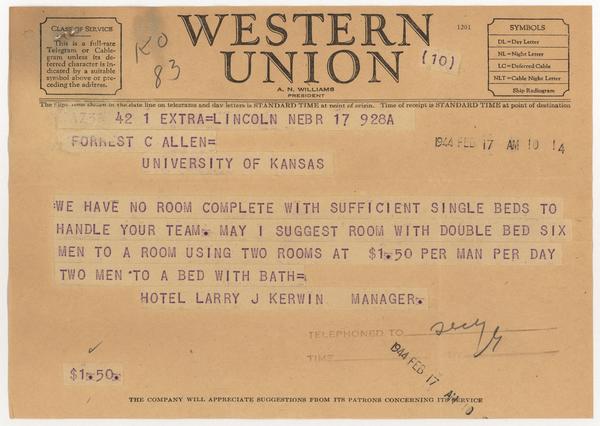 CLASS OF SERVICE
This is a full-rate
Telegram or Cable-
gram unless its de-
ferred character is in-
dicated by a suitable
symbol above or pre-
ceding the address.
WESTERN
UNION
A. N. WILLIAMS
PRESIDENT
1201
(10)
SYMBOLS
DL=Day Letter
NL=Night Letter
LC=Deferred Cable
NLT=Cable Night Letter
Ship Radiogram
83
The time shown in the date line on telegrams and day letters is STANDARD TIME at point of origin. Time of receipt is STANDARD TIME at point of destination
42 1 EXTRA=LINCOLN NEBR 17 928A
FORREST C ALLEN=
1944 FEB 17 AM 10 14
UNIVERSITY OF KANSAS
WE HAVE NO ROOM COMPLETE WITH SUFFICIENT SINGLE BEDS TO
HANDLE YOUR TEAM. MAY I SUGGEST ROOM WITH DOUBLE BED SIX
MEN TO A ROOM USING TWO ROOMS AT $1.50 PER MAN PER DAY
TWO MEN TO A BED WITH BATH=
HOTEL LARRY J KERWIN MANAGER.
TELEPHONED TO
TIME
1944 FEB 17
$1.50.
THE COMPANY WILL APPRECIATE SUGGESTIONS FROM ITS PATRONS CONCERNING ITS SERVICE